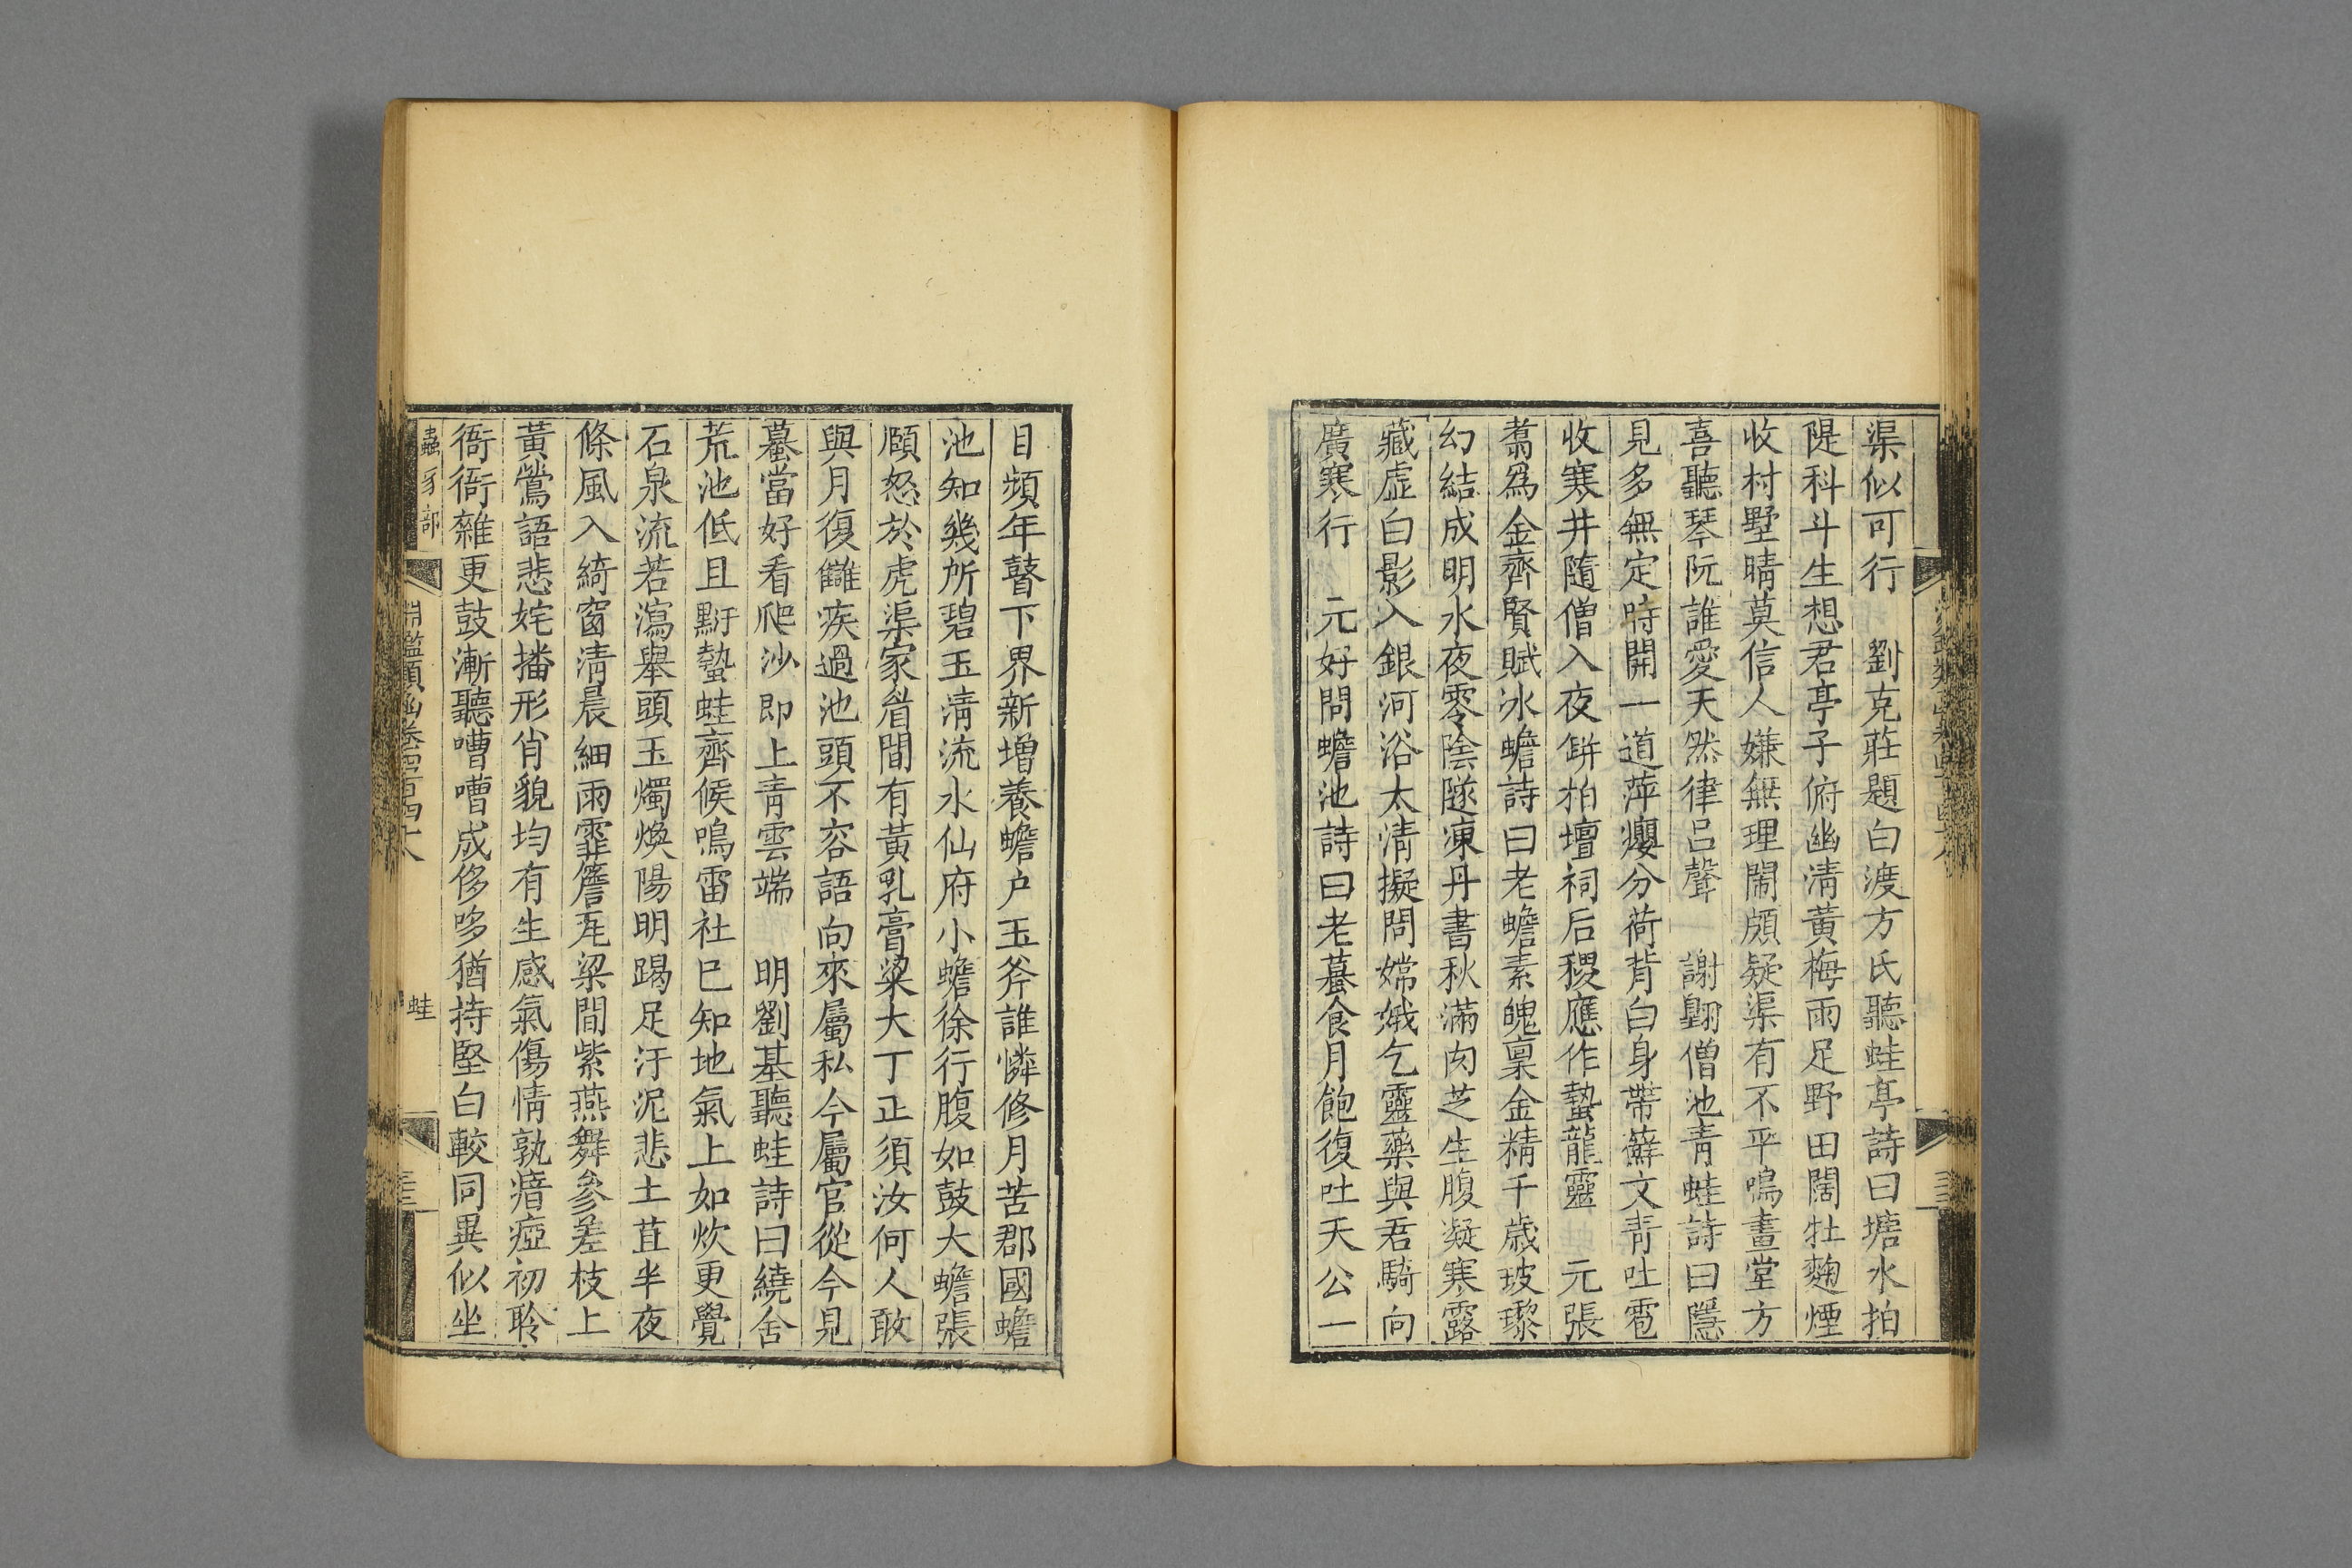 渠似可行　劉克莊題白渡方氏聽蛙亭詩曰塘水拍
隄科斗生想君亭子俯幽清黃梅雨足野田闊牡麴煙
收村墅晴莫信人嫌無理閙頗疑渠有不平鳴畫堂方
喜聽琴阮誰愛天然律呂聲　謝翺僧池青蛙詩曰隱
見多無定時開一道萍癭分荷背白身帶蘚文青吐雹
收寒井隨僧入夜缾柏壇祠后稷應作蟄龍靈　元張
翥為金齊賢賦冰蟾詩曰老蟾素魄稟金精千歲玻瓈
幻結成明水夜零陰隧凍丹書秋滿肉芝生腹凝寒露
藏虛白影入銀河浴太清擬問嫦娥乞靈藥與君騎向
廣寒行　元好問蟾池詩曰老蟇食月飽復吐天公一
目頻年瞽下界新增養蟾户玉斧誰憐修月苦郡國蟾
池知幾所碧玉清流水仙府小蟾徐行腹如鼓大蟾張
頤怒於虎渠家眷間有黃乳膏粱大丁正須汝何人敢
與月復讎疾過池頭不容語向來屬私今屬官從今見
蟇當好看爬沙即上青雲端　明劉基聽蛙詩曰繞舍
荒池低且䵟蟄蛙齊候鳴雷社已知地氣上如炊更覺
石泉流若瀉舉頭玉燭煥陽明跼足汙泥悲土苴半夜
條風入綺窗清晨細雨霏簷瓦梁間紫燕舞參差枝上
黃鶯語悲姹播形肖貌均有生感氣傷情孰瘖瘂初聆
衙衙雜更鼓漸聽嘈嘈成侈哆猶持堅白較同異似坐
蟲豸部
淵鑑類函卷四百四十八
蛙